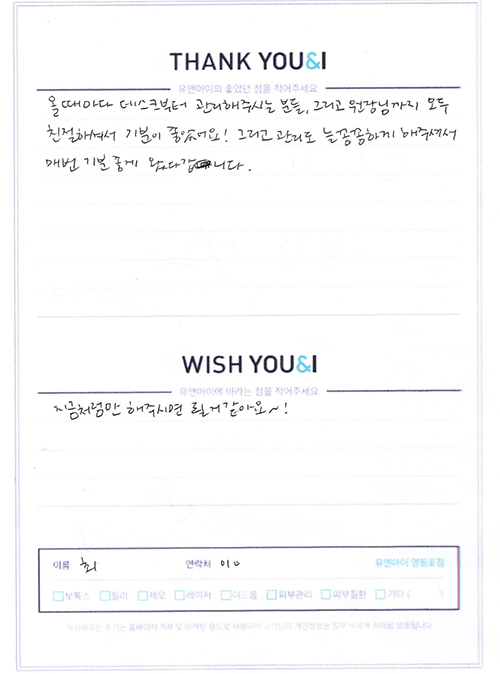 THANK YOU&I
유앤아이의 좋았던 점을 적어주세요
올때마다 데스크부터 관리해주시는 분들, 그리고 원장님까지 모두
친절하셔서 기분이 좋았어요! 그리고 관리도 늘 꼼꼼하게 해주셔서
매번 기분좋게 왔다갑니다.
WISH YOU&I
유앤아이에 바라는 점을 적어주세요
지금처럼만 해주시면 될거 같아요~!
이름 최 연락처 010 유앤아이 영등포점
보톡스 필러 제모 레이저 여드름 피부관리 피부질환 기타 ( )
작성해주신 후기는 홈페이지 게재 및 마케팅 용도로 사용되며 고객님의 개인정보는 일부 비공개 처리로 보호됩니다